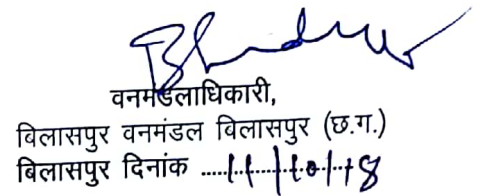 वनमंडलाधिकारी,
बिलासपुर वनमंडल बिलासपुर (छ.ग.)
बिलासपुर दिनांक .....11/10/18